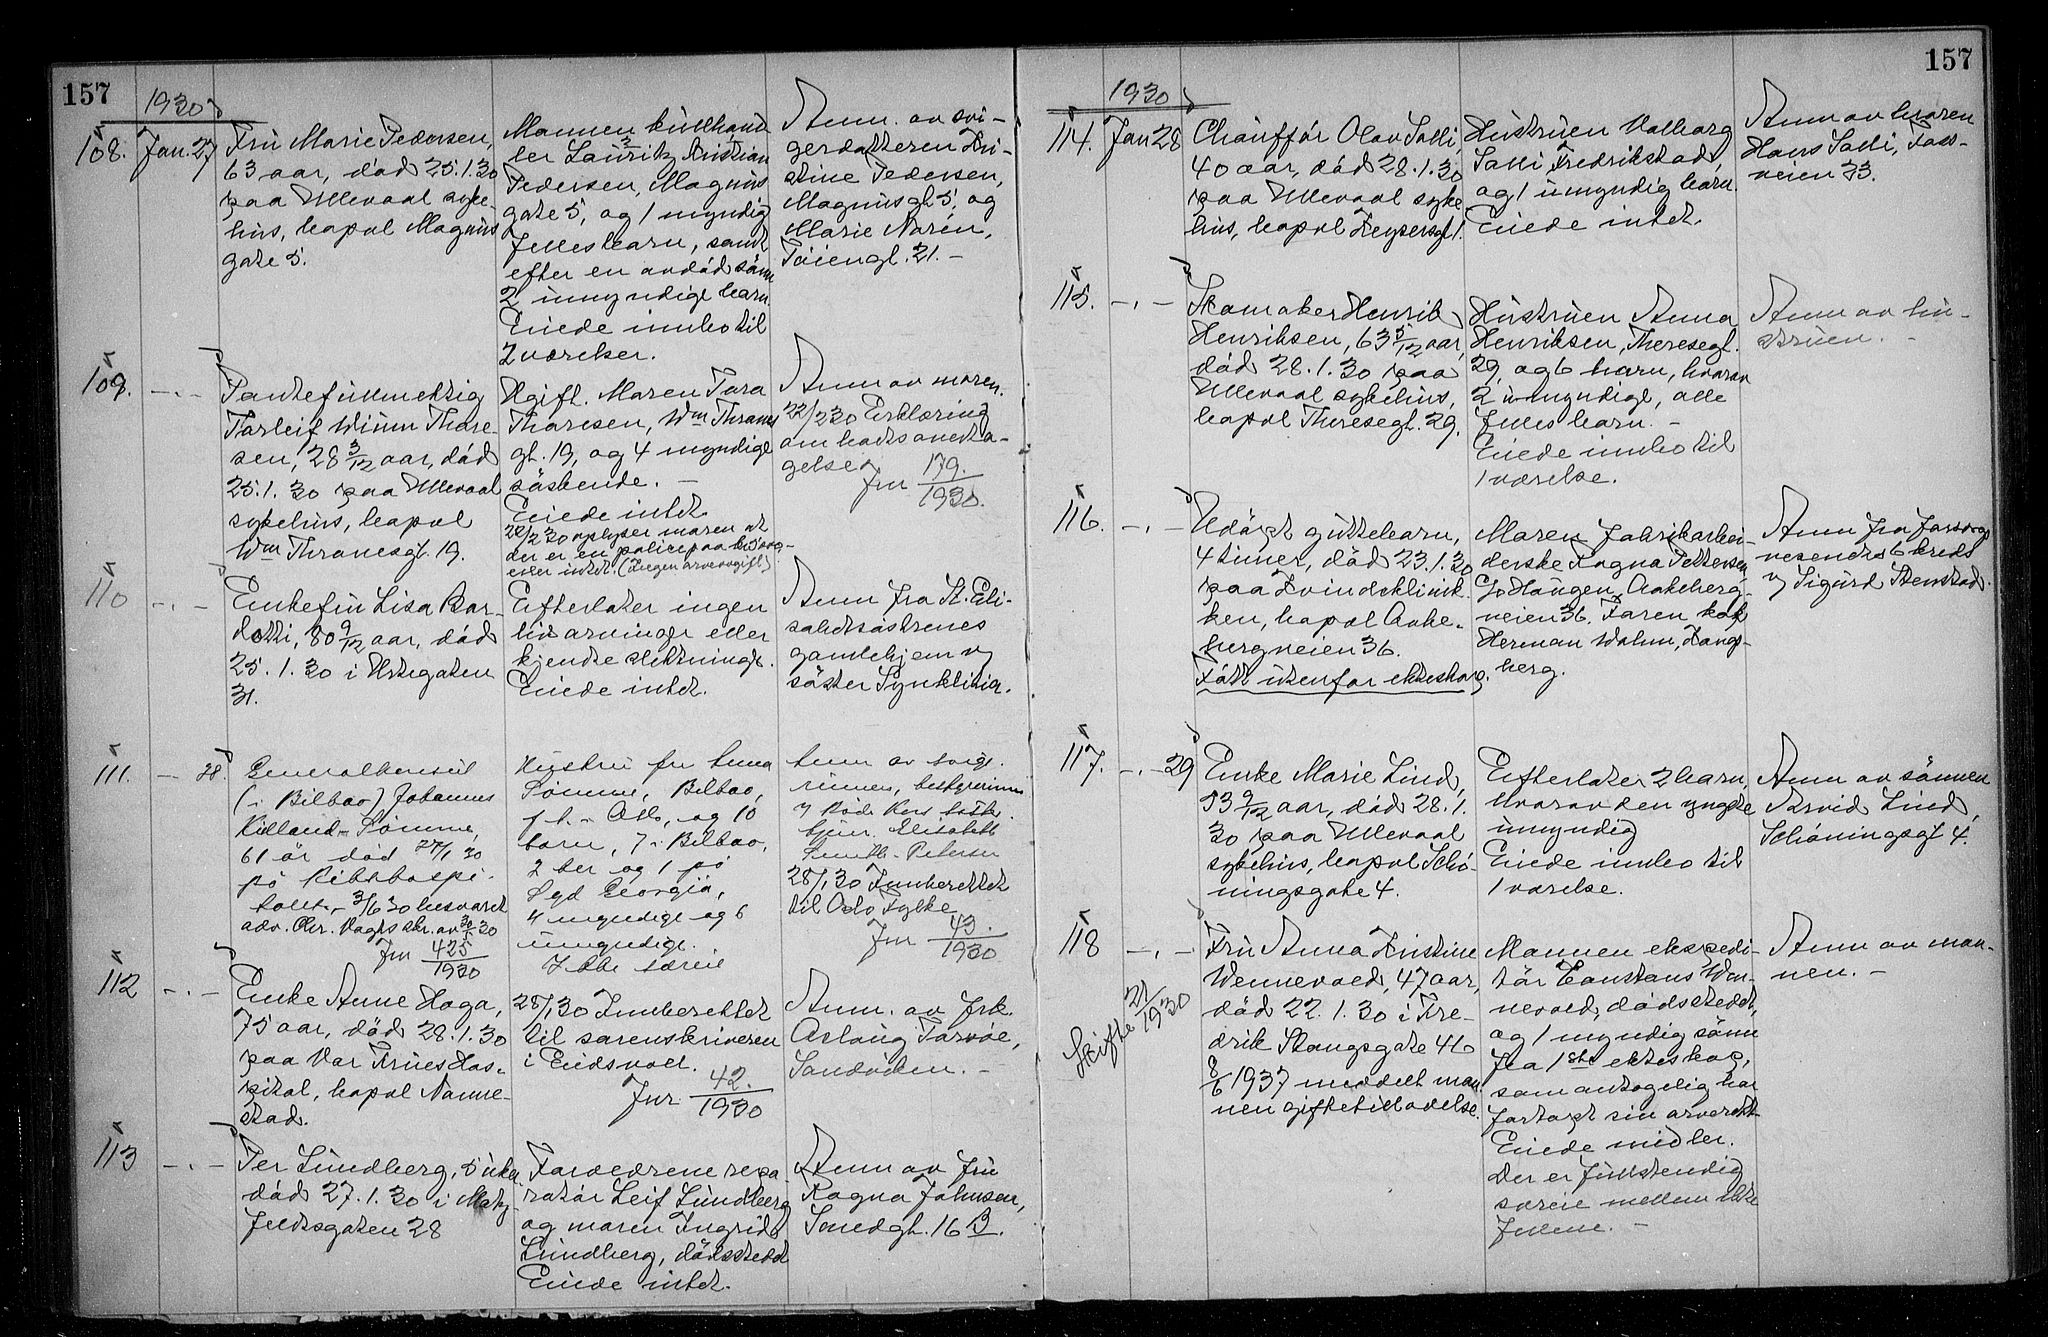 157
1930
108. Jan. 27
Fru Marie Pedersen,
63 aar, död 25.1.30
paa Ullevaal syke-
hus, bopæl Magnus
gate 5.
Mannen kullhand
ler Lauritz Kristian
Pedersen, Magnus
gate 5, og 1 myndig
fellesbarn, samt
efter en avdöd sönn
2 umyndige barn.
Eiede innbo til
2 værelser.
Anm. av svi-
gerdatteren Kri-
stine Pedersen,
Magnusgt. 5, og
Marie Norén,
Töiengt. 21. -
109. - . -
Torleif Wium Thore-
sen, 28 3/12 aar, död
25.1.30 paa Ullevaal
sykehus, bopæl
Wm Thranesgt. 19.
Ugift. Moren Tora
Thoresen, Wm Thranes
gt. 19, og 4 myndige
söskende. -
Eiede intet
22/2 30 oplyser moren at
der er en police paa
eller intet. (Ingen arveavgift)
Anm av moren.
22/2 30 Erklæring
om bodsovertа-
gelse
Jnr 179./1930.
110 - . -
Enkefru Lisa Bar-
dotti, 80 9/12 aar, död
25.1.30 i Ustegaten
31.
Efterlater ingen
livsarvinge eller
kjendte slektninge.
Eiede intet.
Anm fra St. Eli-
sabetsöstrenes
gamlehjem v
söster Synklitia.
111. - 28.
Generalkonsul
(i Bilbao) Johannes
Kielland-Sömme,
61 år död 27/1 30
på Rikshospi-
talet, - 3/6 30 besvaret
adv. Chr. Vogts skr. av 30/5 30
Jnr 425/1930
Hustru fru Anna
Sömme, Bilbao,
p.t. Oslo, og 10
barn, 7 i Bilbao,
2 her og 1 på
Syd Georgia,
4 myndige og 6
umyndige.
Ikke særeie
Anm av svige-
rinnen, bestyrerinne
v Röde Kors
hjem. Elisabeth
28/1 30 Innberettet
til Oslo Fylke
Jnr 43./1930
112 - . -
Enke Anne Haga,
75 aar, död 28.1.30
paa Vor Frues Hos-
pital, bopæl Nanne-
stad.
28/1 30 Innberettet
til sorenskriveren
i Eidsvoll.
Jnr. 42./1930
Anm. av frk.
Aslaug Torvöe,
Sandviken. -
113 - . -
Per Lundberg, 5 uker
död 27.1.30 i Maty-
jeltsgaten 28
Forældrene repa-
ratör Leif Lundberg
og moren Ingrid
Lundberg, dödsstedet
Eiede intet.
Anm av fru
Ragna Johnsen,
16 B.
157
1930
114. Jan 28
Chaufför Olav Solli
40 aar, död 28.1.30
paa Ullevaal syke
hus, bopæl Keysersgt 1.
Hustruen Valborg
Solli Fredrikstad
og 1 umyndig barn.
Eiede intet.
Anm av broren
Hans Solli,
veien 33.
115. - . -
Skomaker Henrik
Henriksen, 63 5/12 aar,
död 28.1.30 paa
Ullevaal sykehus,
bopæl Theresegt. 29.
Hustruen Anna
Henriksen, Theresegt.
29, og 6 barn, hvorav
2 umyndige, alle
felles barn. -
Eiede innbo til
1 værelse.
Anm av hu-
struen. -
116. - . -
Udöpt guttebarn,
4 timer, död 23.1.30
paa Kvindeklinik-
ken, bopæl Aake-
bergveien 36.
Född utenfor ekteskap.
Moren fabrikarbei-
derske Ragna Pettersen,
C/o Haugen, Aakeberg-
veien 36. Faren kok
Herman Wahm, Kongs-
berg.
Anm fra forsorgs
vesenets 6 kreds
v Sigurd Stenstad.
117. - . - 29
Enke Marie Lind,
53 9/12 aar, död 28.1.
30 paa Ullevaal
sykehus, bopæl Schö-
ningsgate 4.
Efterlater 2 barn,
hvorav den yngste
umyndig
Eiede innbo til
1 værelse.
Anm av sönnen
Arvid Lind,
Schöningsgt 4.
118 - . -
Skifte 21/1930
Fru Anna Kristine
Wennevold, 47 aar,
död 22.1.30 i Fre-
drik Stangsgate 46
8/6 1937 meddelt man
nen giftetilladelse.
Mannen ekspedi-
tör Constans Wen-
nevold, dödsstedet,
og 1 myndig sönn
fra 1ste ekteskap,
som antagelig har
fortapt sin arverett
Eiede midler.
Der er fullstendig
særeie mellem ekte
fellene. -
Anm av man-
nen. -